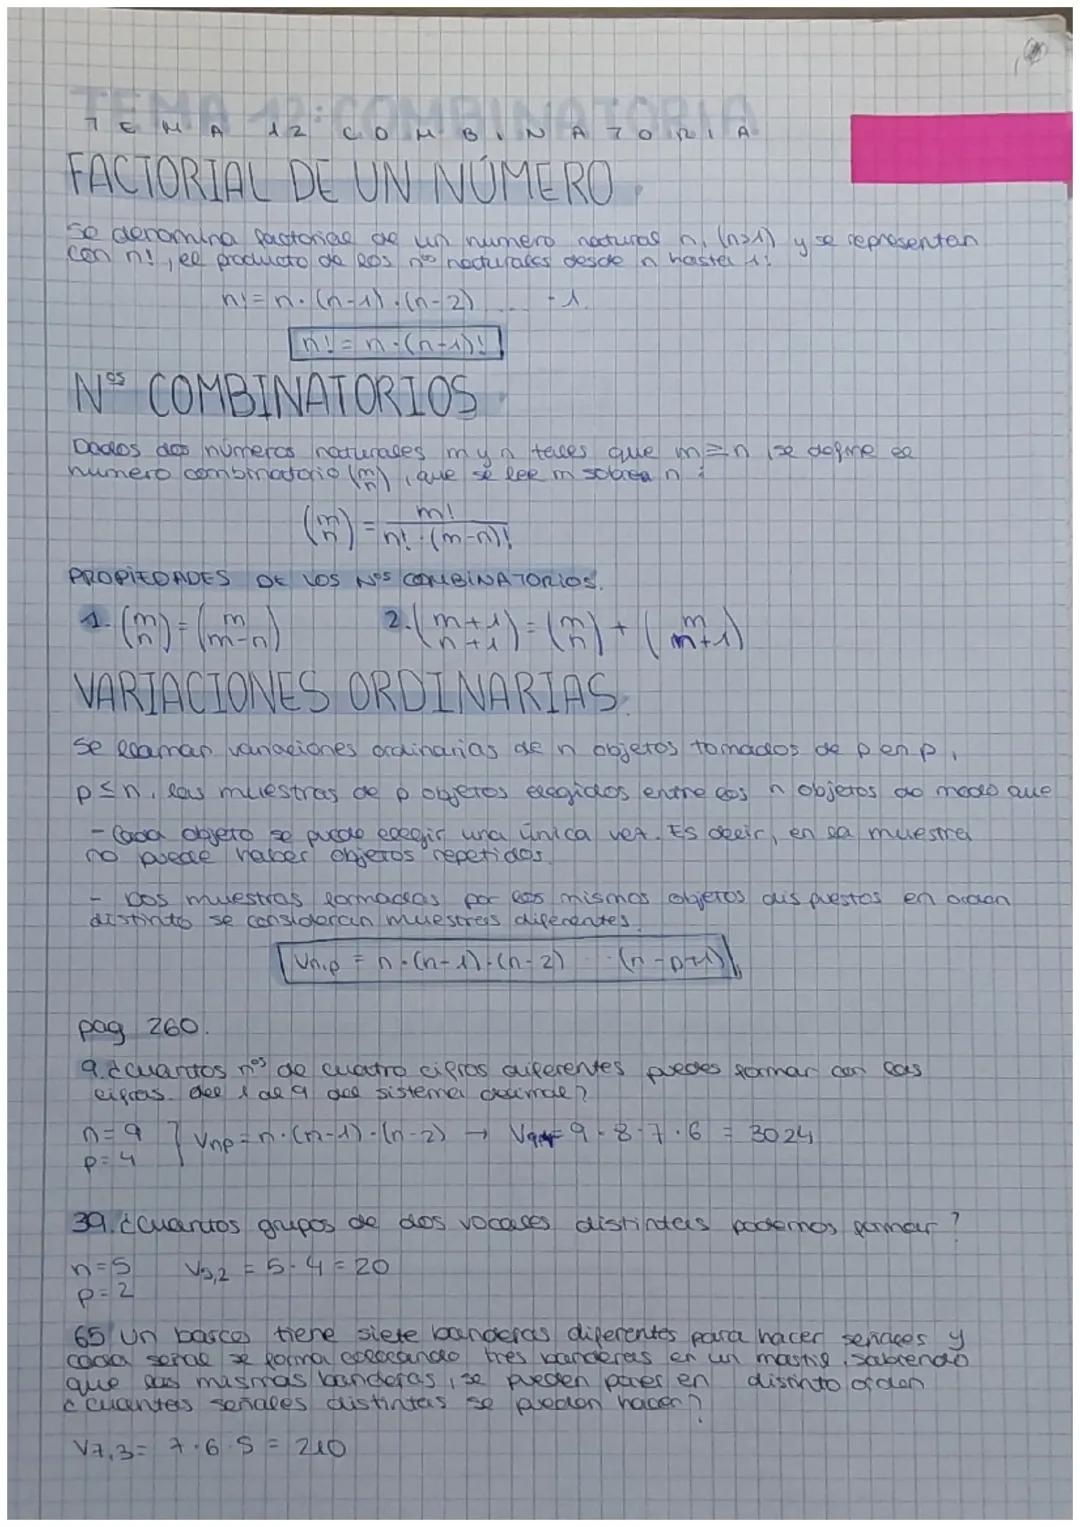 TEMA 12 COMBINATORIA
FACTORIAL DE UN NÚMERO
Se denomina factorial de un numero natural n, (n>1) y se representan
con n!, el producto de los nos naturales desde n hasta 1:
n! = n · (n-1) · (n-2) ... · 1.
n! = n · (n-1)!
Nos COMBINATORIOS
Dados dos números naturales m y n tales que m≥n, se define el
numero combinatorio (m n), que se lee m sobre n:
(m n) = m! / n! · (m-n)!
PROPIEDADES DE LOS Nos COMBINATORIOS.
1. (m n) = (m m-n) 2. (m+1 n+1) = (m n) + (m m+1)
VARIACIONES ORDINARIAS
Se llaman variaciones ordinarias de n objetos tomados de p en p,
p ≤ n, las muestras de p objetos elegidos entre los n objetos de modo que
- Cada objeto se puede elegir una única vez. Es decir, en la muestra
no puede haber objetos repetidos.
- Dos muestras formadas por los mismos objetos dispuestos en orden
distinto se consideran muestras diferentes.
Vn,p = n · (n-1) · (n-2) ... · (n-p+1)
pag 260.
9. ¿cuantos nos de cuatro cifras diferentes puedes formar con las
cifras del 1 al 9 del sistema decimal?
n = 9 } Vnp = n · (n-1) · (n-2) → V9,4 = 9 · 8 · 7 · 6 = 3024
p = 4
39. ¿Cuantos grupos de dos vocales distintas podemos formar?
n = 5 V5,2 = 5 · 4 = 20
p = 2
65 Un barco tiene siete banderas diferentes para hacer señales y
cada señal se forma colocando tres banderas en un mastil, sabiendo
que las mismas banderas, se pueden poner en distinto orden
¿cuantas señales distintas se pueden hacer?
V7,3 = 7 · 6 · 5 = 210